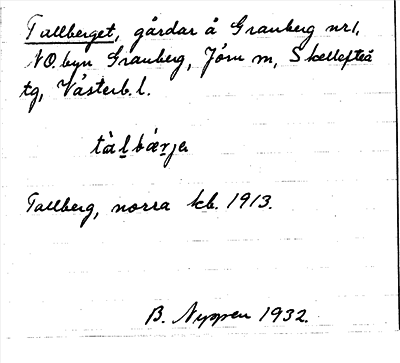 Tallberget, gårdar å Granberg nr 1,
NO. byn Granberg, Jörn sn, Skellefteå
tg, Västerb. l.
tàl̠bær̠je
Tallberg, norra kb. 1913.
B. Nyppen 1932.